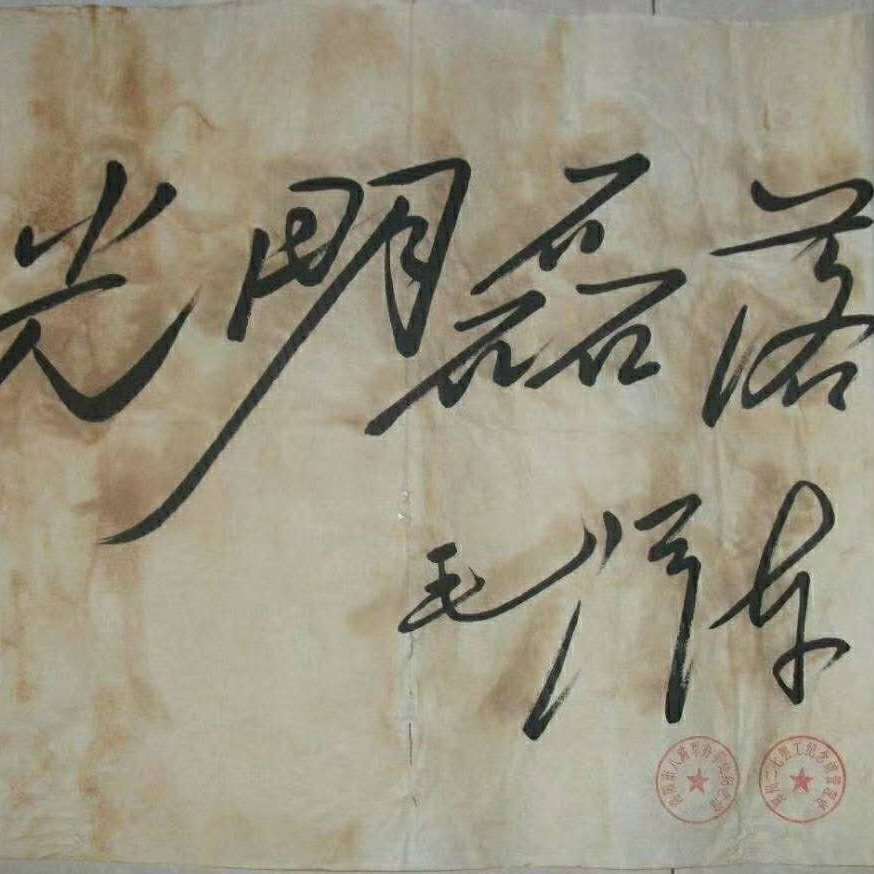 光明磊落
毛泽东